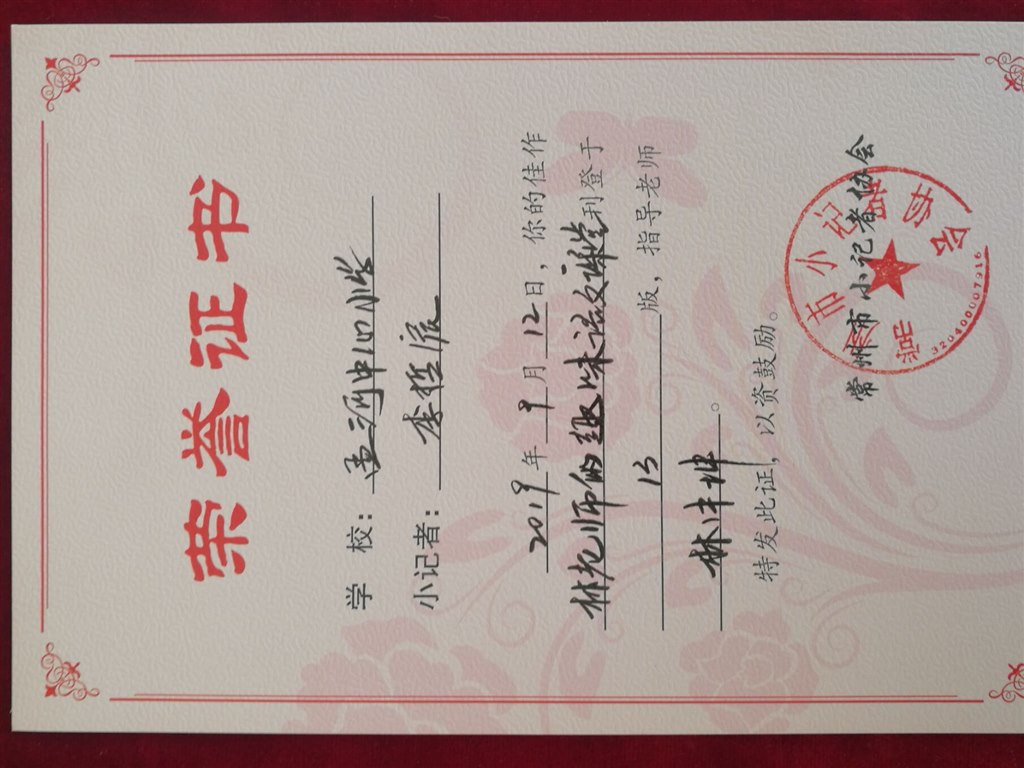 荣誉证书
学 校：孟河中心小学
小记者：李哲辰
2019年9月12日，你的佳作
林老师的趣味语文课堂刊登于
13版，指导老师
林
特发此证，以资鼓励。
常州市小记者协会
常州市小记者协会
3204000007916